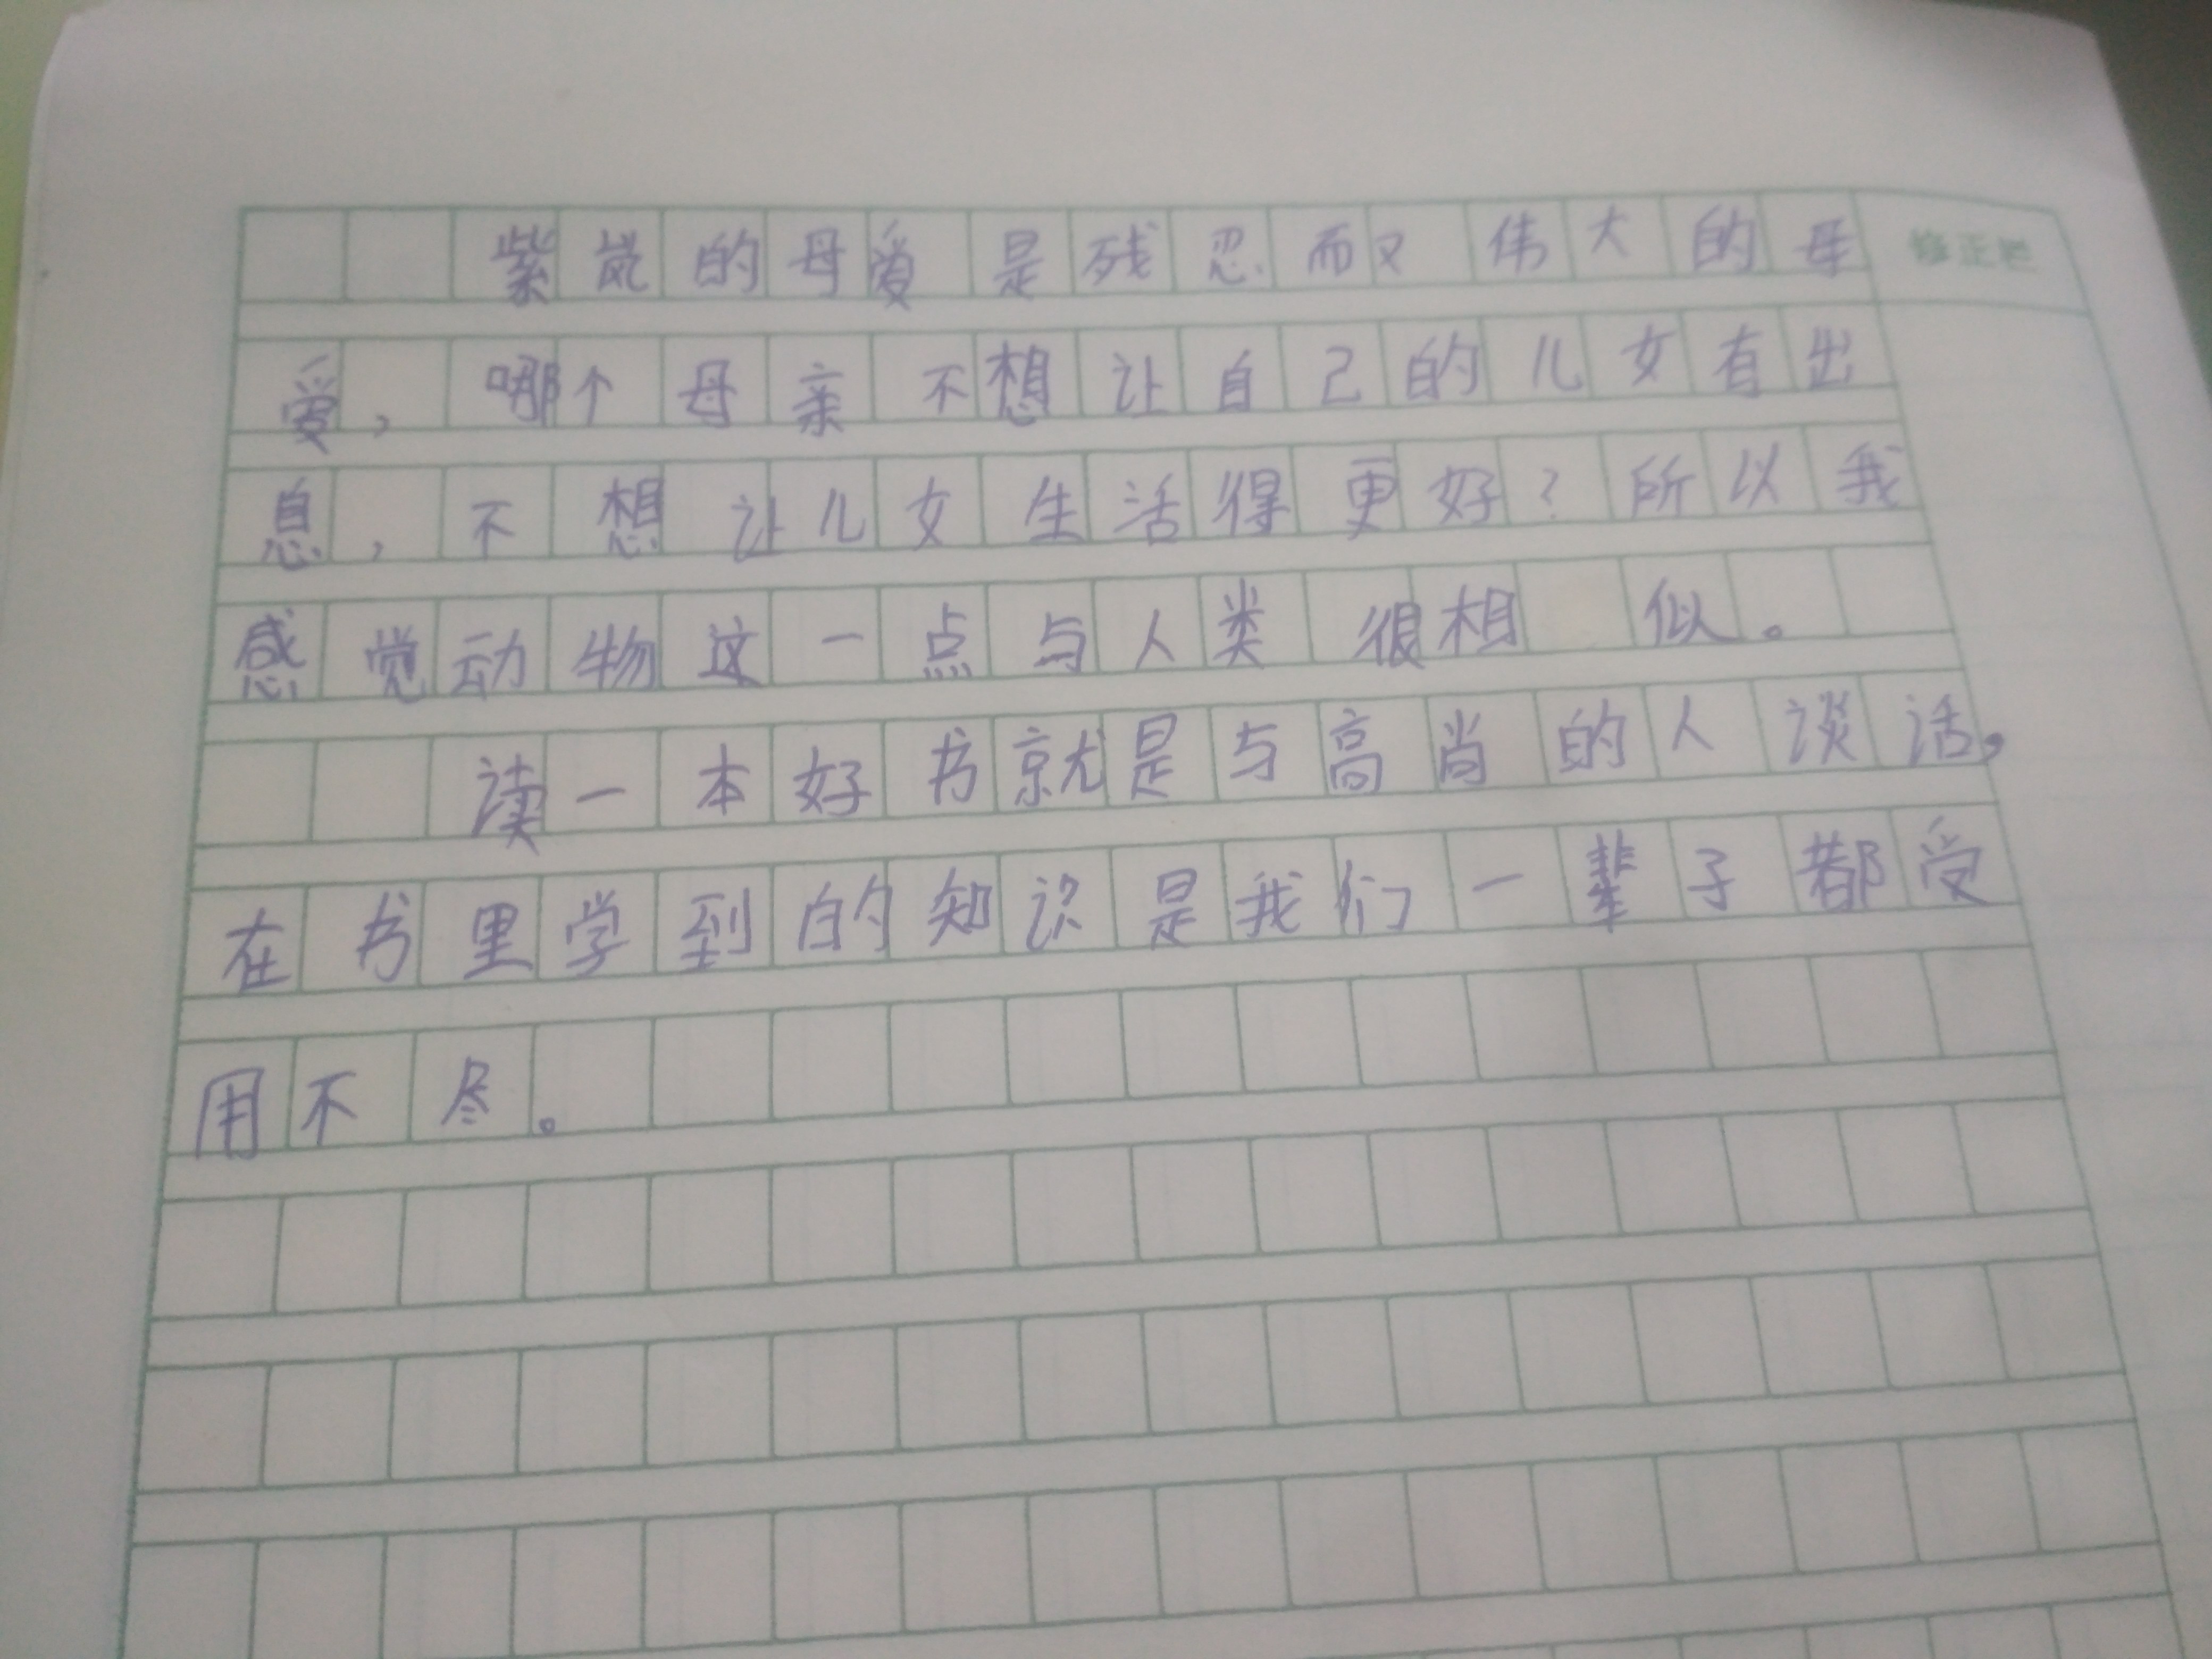 紫岚的母爱是残忍而又伟大的母
爱，哪个母亲不想让自己的儿女有出
息，不想让儿女生活得更好？所以我
感觉动物这一点与人类很相似。
读一本好书就是与高尚的人谈话，
在书里学到的知识是我们一辈子都受
用不尽。
修正栏